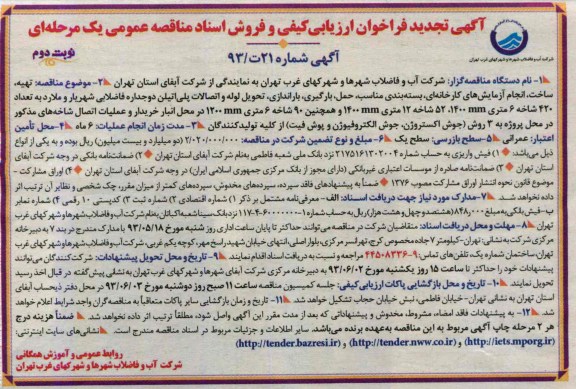 آگهی تجدید فراخوان ارزیابی‌کیفی و فروش اسناد مناقصه عمومی یک مرحله‌ای
آگهی شماره ۲۱ت/۹۳
نوبت دوم
شرکت آب و فاضلاب شهرها و شهرکهای غرب تهران
۱- نام دستگاه مناقصه‌گزار: شرکت آب و فاضلاب شهرها و شهرکهای غرب تهران به نمایندگی از شرکت آبفای استان تهران ۲- موضوع مناقصه: تهیه،
ساخت، انجام آزمایش‌های کارخانه‌ای، بسته‌بندی مناسب، حمل، بارگیری، باراندازی، تحویل لوله و اتصالات پلی‌اتیلن دوجداره فاضلابی شهریار و ملارد به تعداد
۴۲۰ شاخه ۶ متری ۱۴۰۰ mm، ۵۲ شاخه ۱۲ متری ۱۴۰۰ mm و همچنین ۹۰ شاخه ۶ متری ۱۲۰۰ mm در محل انبار خریدار و عملیات اتصال شاخه‌های مذکور
در محل پروژه به ۳ روش (جوش اکستروژن، جوش الکتروفیوژن و پوش فیت) از کلیه تولیدکنندگان ۳- مدت زمان انجام عملیات: ۶ ماه ۴- محل تأمین
اعتبار: عمرانی ۵- سطح بازرسی: سطح یک ۶- مبلغ و نوع تضمین شرکت در مناقصه: ۲/۰۲۰/۰۰۰/۰۰۰ (دو میلیارد و بیست میلیون) ریال بوده و به یکی از انواع
ذیل می‌باشد: ۱) فیش واریزی به حساب شماره ۲۱۷۵۱۶۱۳۰۲۰۰۴ نزد بانک ملی شعبه فاطمی به‌نام شرکت آبفای استان تهران ۲) ضمانت‌نامه بانکی در وجه شرکت آبفای
استان تهران ۳) ضمانت‌نامه صادره از موسسات اعتباری غیربانکی (دارای مجوز از بانک مرکزی جمهوری اسلامی ایران) در وجه شرکت آبفای استان تهران ۴) اوراق مشارکت -
موضوع قانون نحوه انتشار اوراق مشارکت مصوب ۱۳۷۶ ضمناً به پیشنهادهای فاقد سپرده، سپرده‌های مخدوش، سپرده‌های کمتر از میزان مقرر، چک شخصی و نظایر آن ترتیب اثر
داده نخواهد شد. ۷- مدارک مورد نیاز جهت دریافت اسناد: الف- معرفی‌نامه مشتمل بر ذکر ۱) شماره اقتصادی ۲) شماره ثبت ۳) کدپستی ۱۰ رقمی ۴) شماره نمابر
ب- فیش بانکی به مبلغ ۸۴۸/۰۰۰ (هشتصد و چهل و هشت هزار) ریال به حساب شماره ۱-۱۱۷-۴-۶۰۰۰۰۰۰ نزد بانک سینا شعبه اکباتان به‌نام شرکت آب و فاضلاب شهرها و شهرکهای غرب
تهران ۸- مهلت و محل دریافت اسناد: متقاضیان شرکت در مناقصه می‌توانند حداکثر تا پایان ساعت اداری روز شنبه مورخ ۹۳/۰۵/۱۸ با مدارک مندرج در بند ۷ به دبیرخانه
مرکزی شرکت به نشانی: تهران- کیلومتر ۷ جاده مخصوص کرج، تهرانسر مرکزی، بلوار اصلی، انتهای خیابان شهید راسخ مهر، کوچه یکم غربی، شرکت آب و فاضلاب شهرها و شهرکهای غرب
تهران، ساختمان شماره یک، تلفن‌های تماس: ۹-۴۴۵۰۸۳۳۶ مراجعه و نسبت به دریافت اسناد اقدام نمایند. ۹- تاریخ و محل تحویل پیشنهادات: شرکت‌کنندگان می‌توانند
پیشنهادات خود را حداکثر تا ساعت ۱۵ روز یکشنبه مورخ ۹۳/۰۶/۰۲ به دبیرخانه مرکزی شرکت آبفای شهرها و شهرکهای غرب تهران به نشانی پیش‌گفته در قبال اخذ رسید
تحویل نمایند. ۱۰- تاریخ و محل بازگشایی پاکات ارزیابی کیفی: جلسه کمیسیون مناقصه ساعت ۱۱ صبح روز دوشنبه مورخ ۹۳/۰۶/۰۳ در محل دفتر ذیحساب آبفای
استان تهران به نشانی تهران- خیابان فاطمی، نبش خیابان حجاب تشکیل خواهد شد. ۱۱- تاریخ و زمان بازگشایی سایر پاکات متعاقباً به مناقصه‌گران واجد شرایط اعلام خواهد
شد. ۱۲- به پیشنهادات فاقد امضاء، مشروط، مخدوش و پیشنهاداتی که بعد از مدت مقرر این آگهی واصل شود، مطلقاً ترتیب اثر داده نخواهد شد. ضمناً هزینه درج
هر ۲ مرحله چاپ آگهی مربوط به این مناقصه به‌عهده برنده می‌باشد. سایر اطلاعات و جزئیات مربوط در اسناد مناقصه مندرج است. نشانی‌های سایت اینترنتی:
(http://iets.mporg.ir) و (http://tender.nww.co.ir) و (http://tender.bazresi.ir)
روابط عمومی و آموزش همگانی
شرکت آب و فاضلاب شهرها و شهرکهای غرب تهران